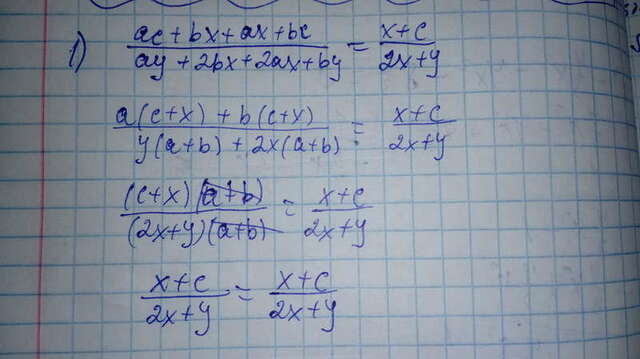 1) (ac + bx + ax + bc)/(ay + 2bx + 2ax + by) = (x+c)/(2x+y)
(a(c+x) + b(c+x))/(y(a+b) + 2x(a+b)) = (x+c)/(2x+y)
((c+x)(a+b))/((2x+y)(a+b)) = (x+c)/(2x+y)
(x+c)/(2x+y) = (x+c)/(2x+y)